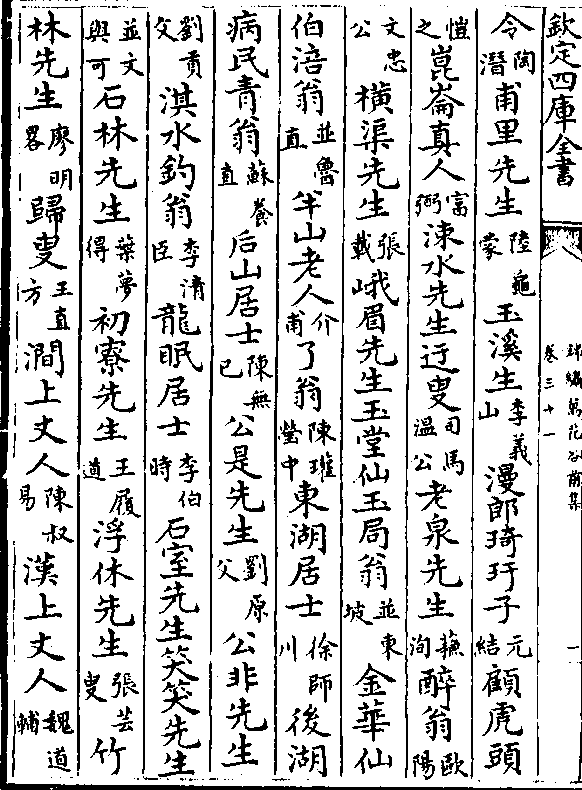 欽定四庫全書
錦繡萬花谷前集
卷三十一
一
令陶潛甫里先生陸龜蒙玉溪生李義山漫郎琦玗子元結顧虎頭
愷之崑崙真人富弼涑水先生迂叟司馬溫公老泉先生蘓洵醉翁歐陽
文忠公橫渠先生張載峨眉先生玉堂仙玉局翁並東坡金華仙
伯涪翁並魯直半山老人介甫了翁陳瓘瑩中東湖居士徐師川後湖
病民青翁蘇養直后山居士陳無已公是先生劉原父公非先生
劉貢父淇水釣翁李清臣龍眠居士李伯時石室先生笑笑先生
並文與可石林先生葉夢得初寮先生王履道浮休先生張芸叟竹
林先生廖明畧歸叟王直方澗上丈人陳叔易漢上丈人魏道輔